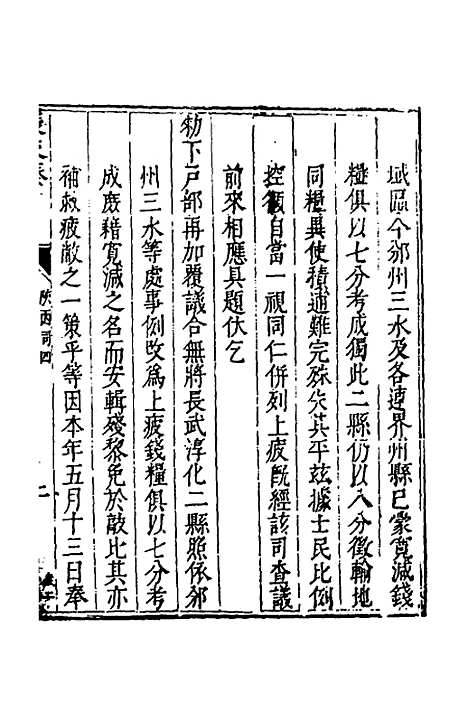 域區今邠州三水及各連界州縣已蒙寬減錢
糧俱以七分考成獨此二縣仍以八分徵輸地
同糧異使積逋難完殊失其平玆據士民比例
控籲自當一視同仁併列上疲既經該司查議
前來相應具題伏乞
勑下戶部再加覆議合無將長武淳化二縣照依邠
州三水等處事例改為上疲錢糧俱以七分考
成庶藉寬減之名而安輯殘黎免於敲比其亦
補救疲敝之一策乎等因本年五月十三日奉
陝西司四